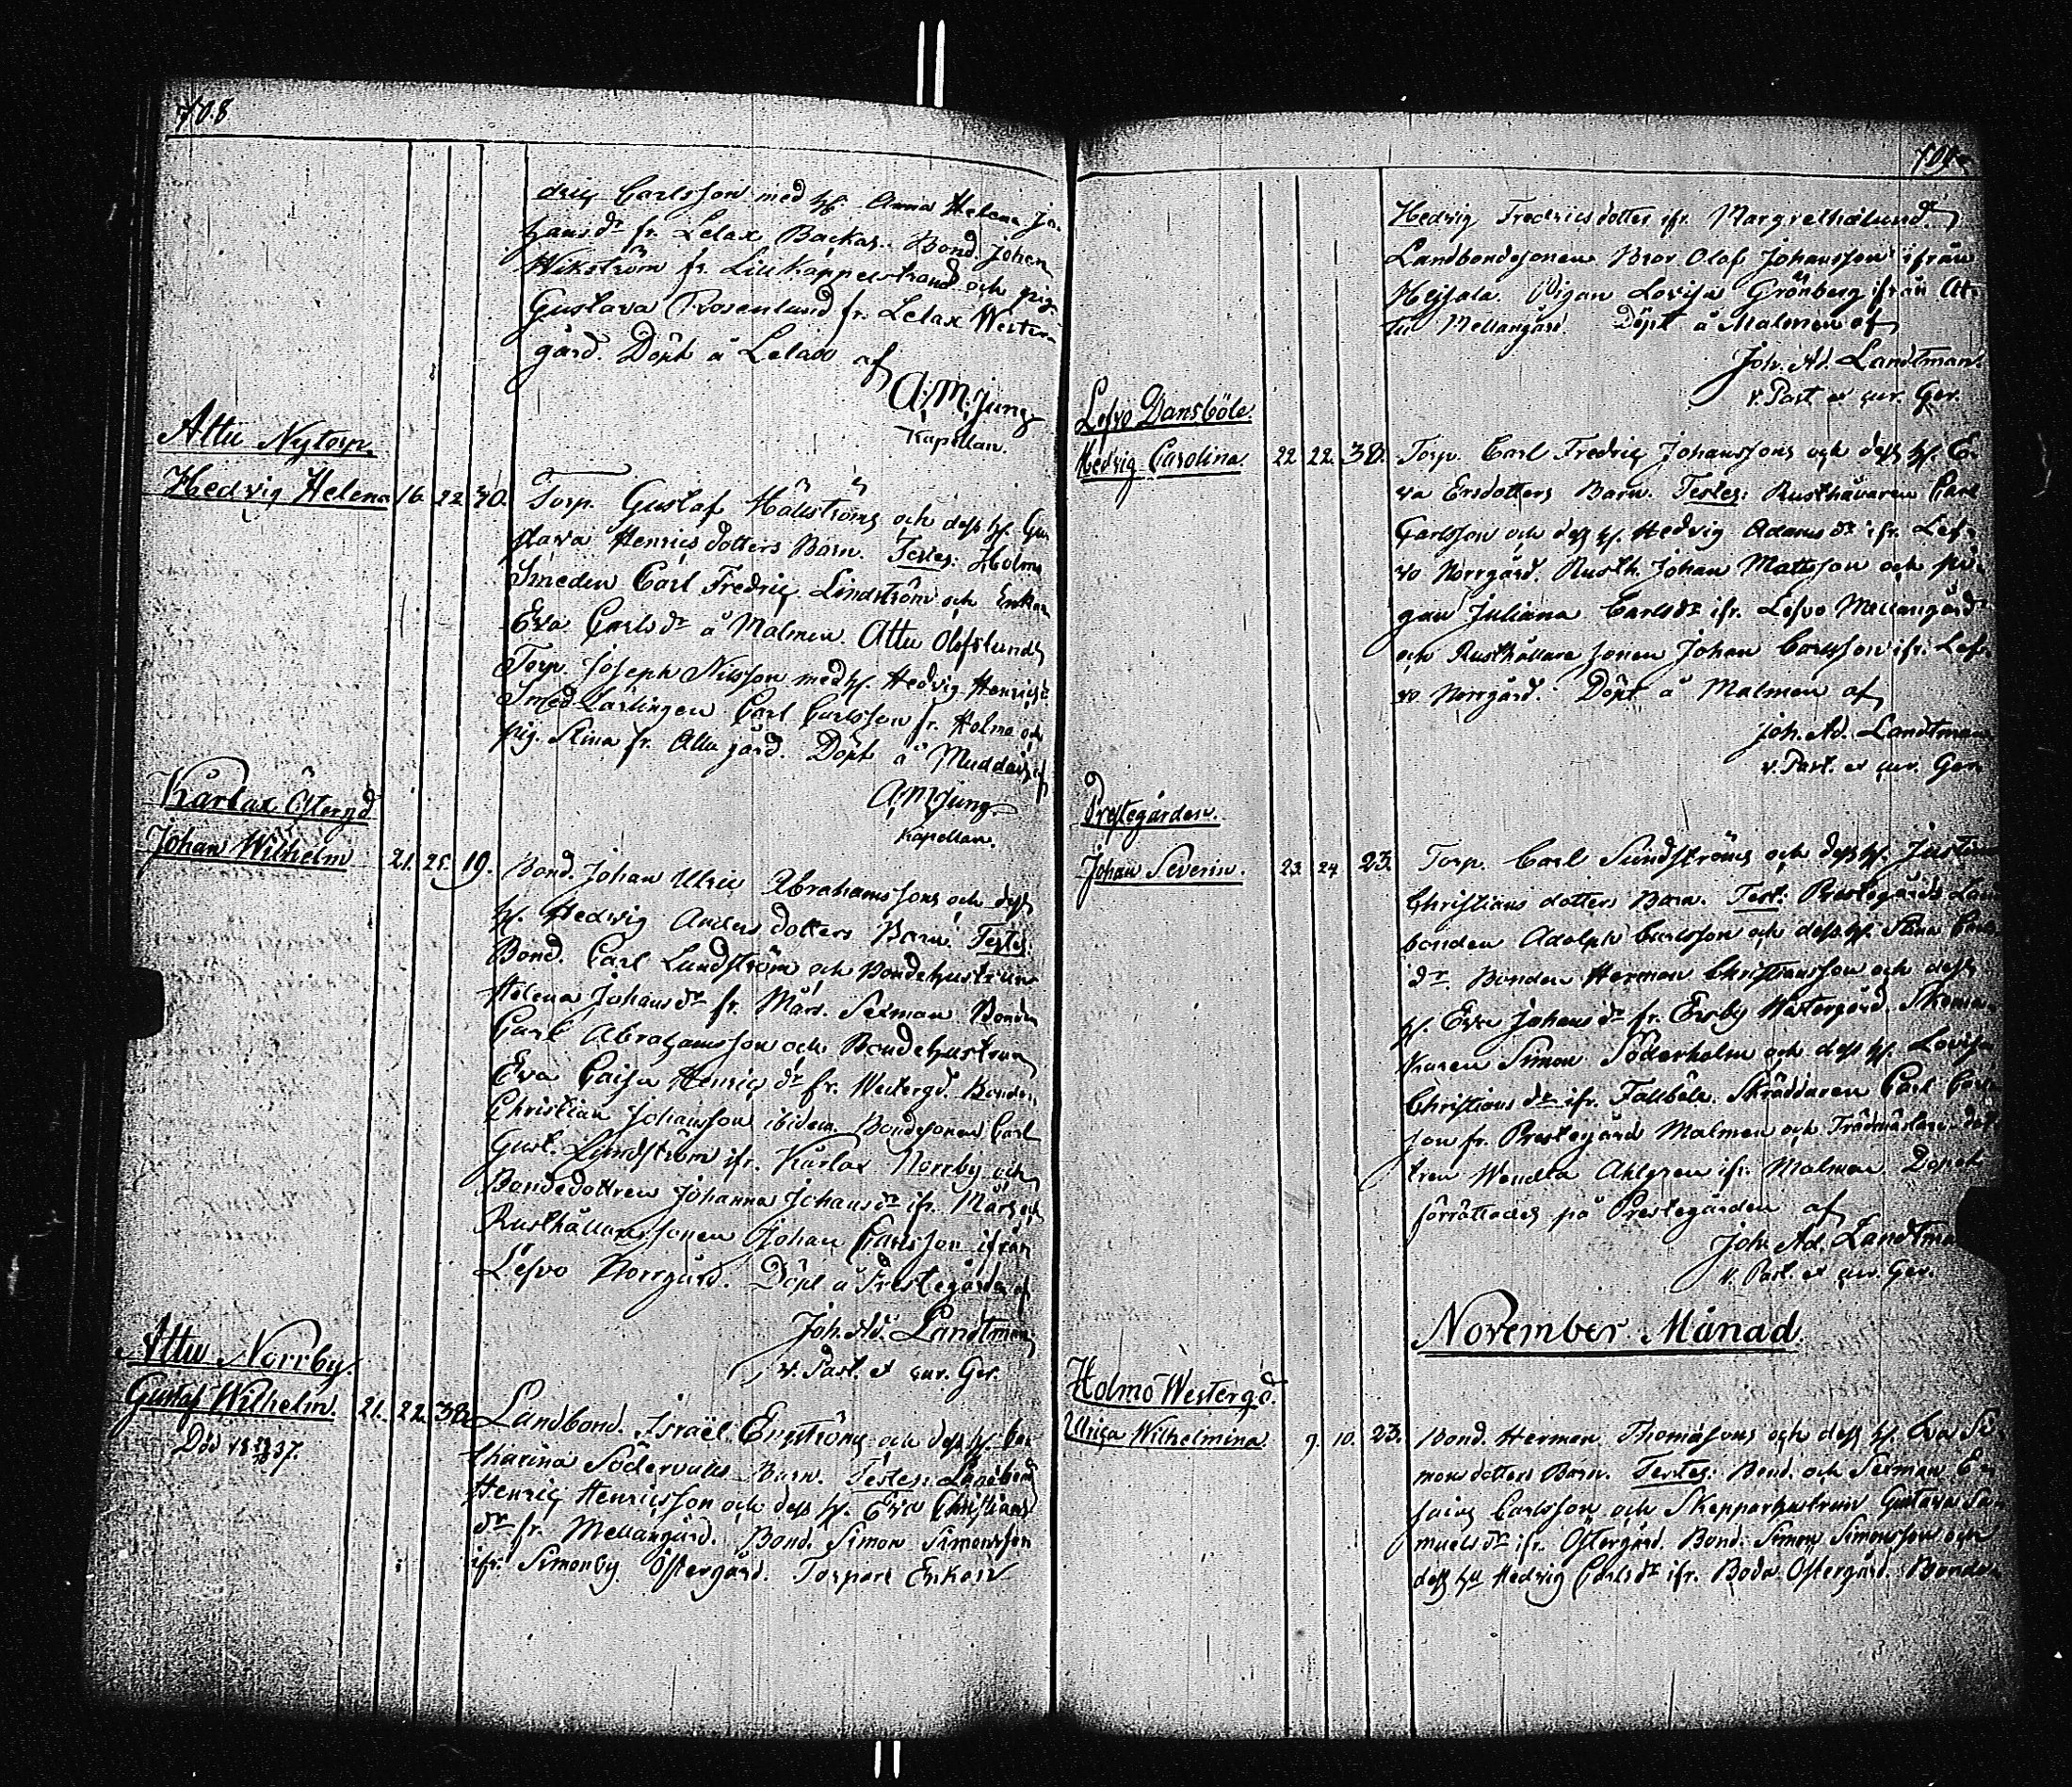 708
dric Carlsson med h. Anna Helena Jo-
hansdr fr. Lelax Backas. Bond. Johan
Wikström fr. Lill Kappelstrand och pig.
Gustava Rosenlund fr. Lelax Wester-
gård. Döpt å Lelax af
A. M. Jung
Kapellan.
Attu Nytorp.
Hedvig Helena 16. 22. 40. Torp. Gustaf Hällströms och dess h. Gu
stava Henricsdotters Barn. Testes: Holma
Smeden Carl Fredric Lindström och Enkan
Eva Carlsdr å Malmen. Attu Olofslunds
Torp. Joseph Nilsson med h. Hedvig Henricsd.
Smed Lärlingen Carl Carlsson fr. Holma och
pig. Stina fr. Attu gård. Döpt å Muddais af
A M Jung
Kapellan.
Kärlax Östergd
Johan Wilhelm 21. 25. 19. Bond. Johan Ulric Abrahamssons och dess
h. Hedvig Andersdotters Barn. Testes:
Bond. Carl Lundström och Bondehustrun
Helena Johansdr fr. Mårs. Sexman Bonden
Carl Abrahamsson och Bondehustrun
Eva Caisa Henricsdr fr. Westergd. Bonden
Christian Johansson ibidem. Bondesonen Carl
Gust. Lundström ifr. Kärlax Norrby och
Bondedottren Johanna Johansdr ifr. Mårs och
Rusthållaressonen Johan Carlsson ifrån
Lefvo Norrgård. Döpt å Prestegården af
Joh. Ad. Landtman
v. Past. et cur. Ger.
Attu Norrby.
Gustaf Wilhelm. 21. 22. 38. Landbond. Israël Engströms och dess h. Ca
Död
tharina Södervalls Barn. Testes: Landbond
Henric Henricsson och dess h. Eva Christians
dr fr. Mellangård. Bond. Simon Simonsson
ifr. Simonby Östergård. Torpare Enkan
709
Hedvig Fredricsdotter ifr. Margrethælund.
Landbondesonen Bror Olof Johansson ifrån
Hejsala. Pigan Lovisa Grönberg ifrån At-
tu Mellangård. Döpt å Malmen af
Joh. Ad. Landtman.
v. Past et cur. Ger.
Lefvo Dansböle.
Hedvig Carolina. 22. 22. 38. Torp. Carl Fredric Johanssons och dess h. E-
va Ersdotters Barn. Testes: Rusthållaren Carl
Carlsson och dess h. Hedvig Adamsdr ifr. Lef-
vo Norrgård. Rusth. Johan Mattsson och pi-
gan Juliana Carlsdr ifr. Lefvo Mellangård
och Rusthållare sonen Johan Carlsson ifr. Lef-
vo Norrgård. Döpt å Malmen af
Joh. Ad. Landtman
v. Past. et cur. Ger
Prestegården.
Johan Severin. 23. 24. 23. Torp. Carl Sundströms och dess h. Justina
Christiansdotters Barn. Test: Prestegårds Land
bonden Adolph Carlsson och dess h. Stina Carls
dr. Bonden Herman Christiansson och dess
h. Eva Johansdr fr. Ersby Westergård. Skoma-
karen Simon Söderholm och dess h. Lovisa
Christiansdr ifr. Fallböle. Skräddaren Carl Carls
son fr. Prestegård Malmen och Trädmästare dot
tren Wendla Ahlgren ifr. Malmen. Dopet
förrättades på Prestegården af
Joh. Ad. Landtma
v. Past. et cur. Ger.
November Månad.
Holmo Westergd.
Ulrica Wilhelmina. 9. 10. 23. Bond. Herman Thomassons och dess h. Eva Si-
monsdotters Barn. Testes: Bond. och Sexman E-
saias Carlsson och Skepparhustrun Gustava Sa-
muelsdr ifr. Östergård. Bond. Simon Simonsson och
dess hu Hedvig Carlsdr ifr. Boda Östergård. Bonde-